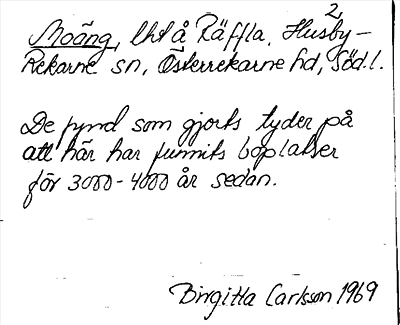 2
Moäng, lht å Räffla, Husby-
Rekarne sn, Österrekarne hd, Söd.l.
De fynd som gjorts tyder på
att här har funnits boplatser
för 3000-4000 år sedan.
Birgitta Carlsson 1969